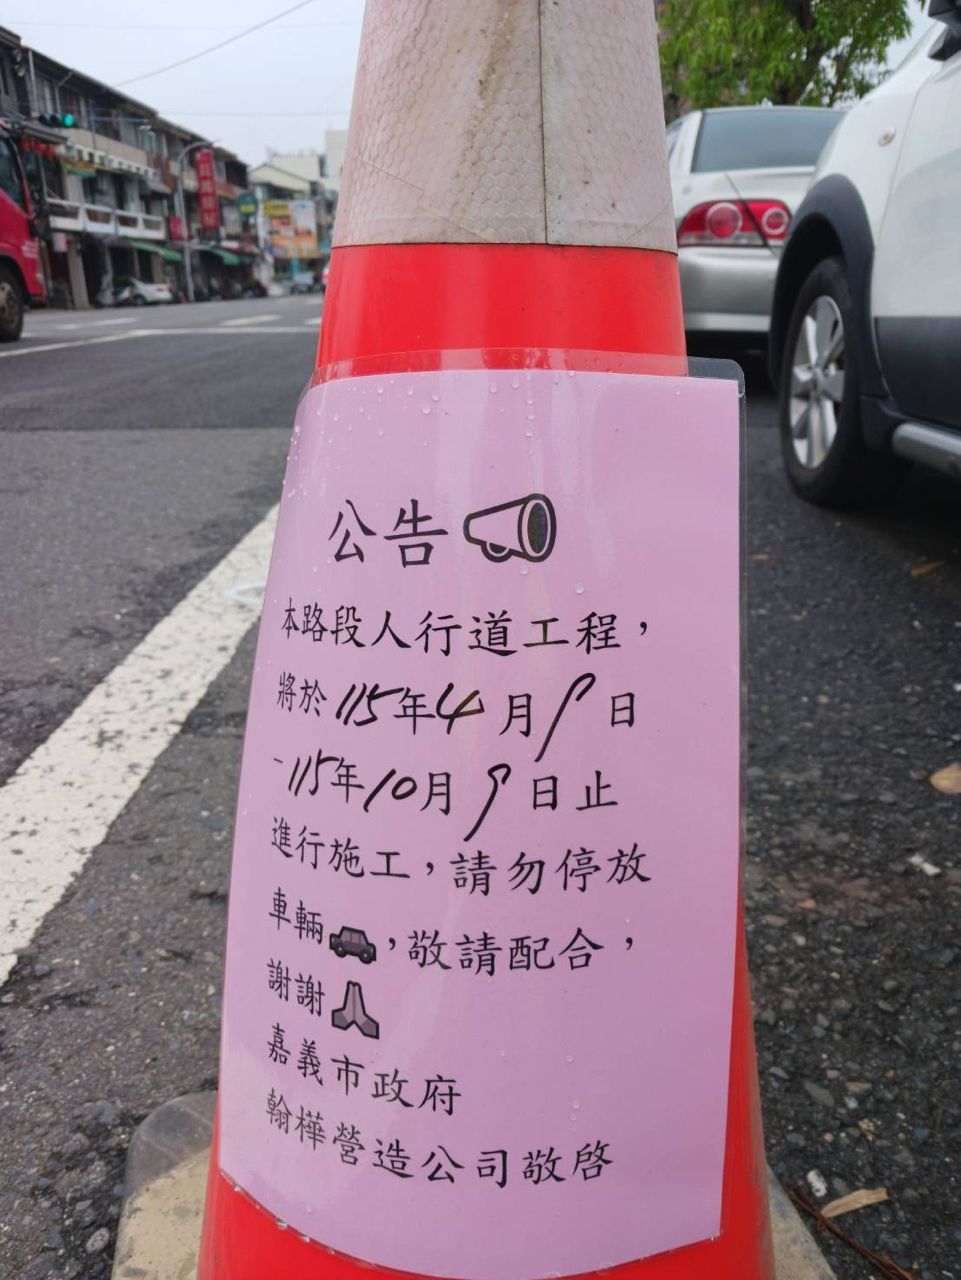 公告
本路段人行道工程，
將於115年4月9日
-115年10月9日止
進行施工，請勿停放
車輛，敬請配合，
謝謝
嘉義市政府
翰樺營造公司敬啓